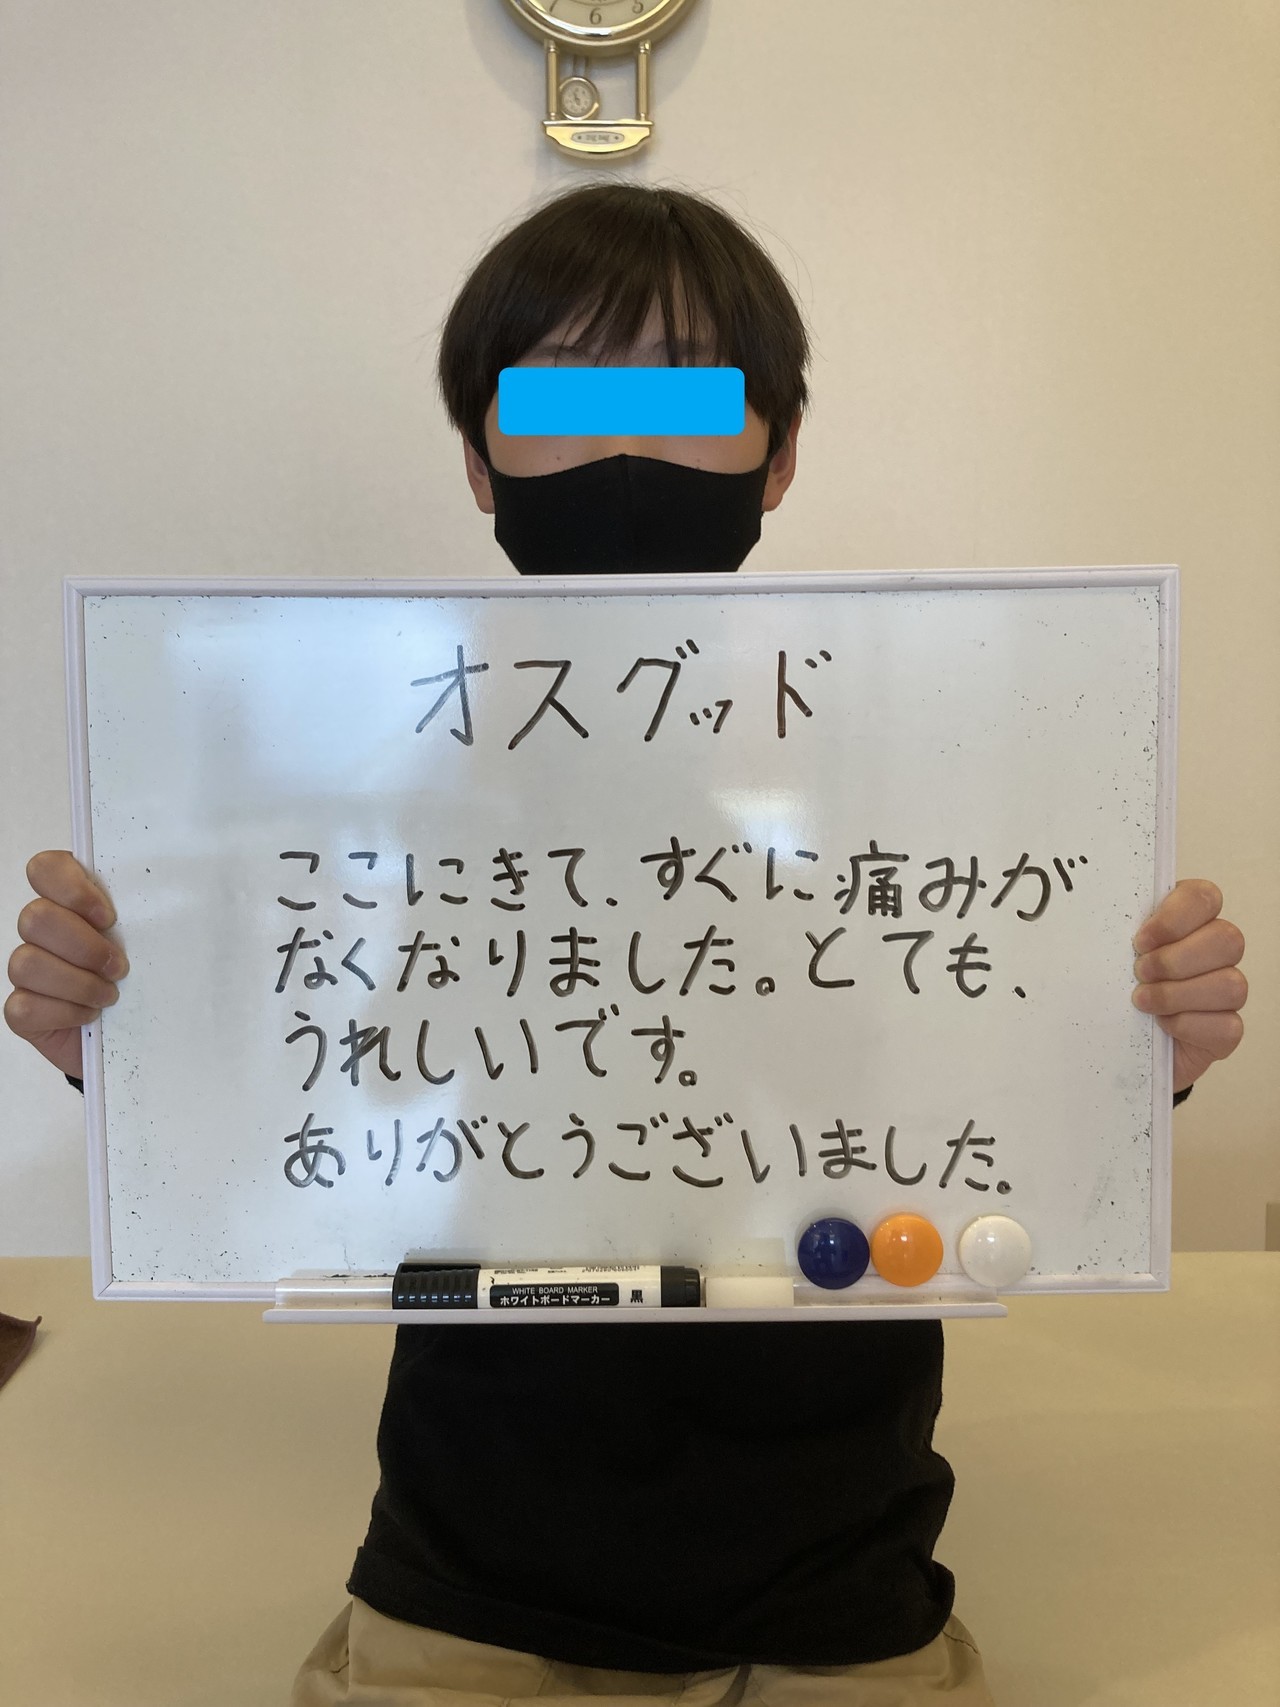 6
オスグッド
ここにきて、すぐに痛みが
なくなりました。とても、
うれしいです。
ありがとうございました。
WHITE BOARD MARKER
ホワイトボードマーカー 黒